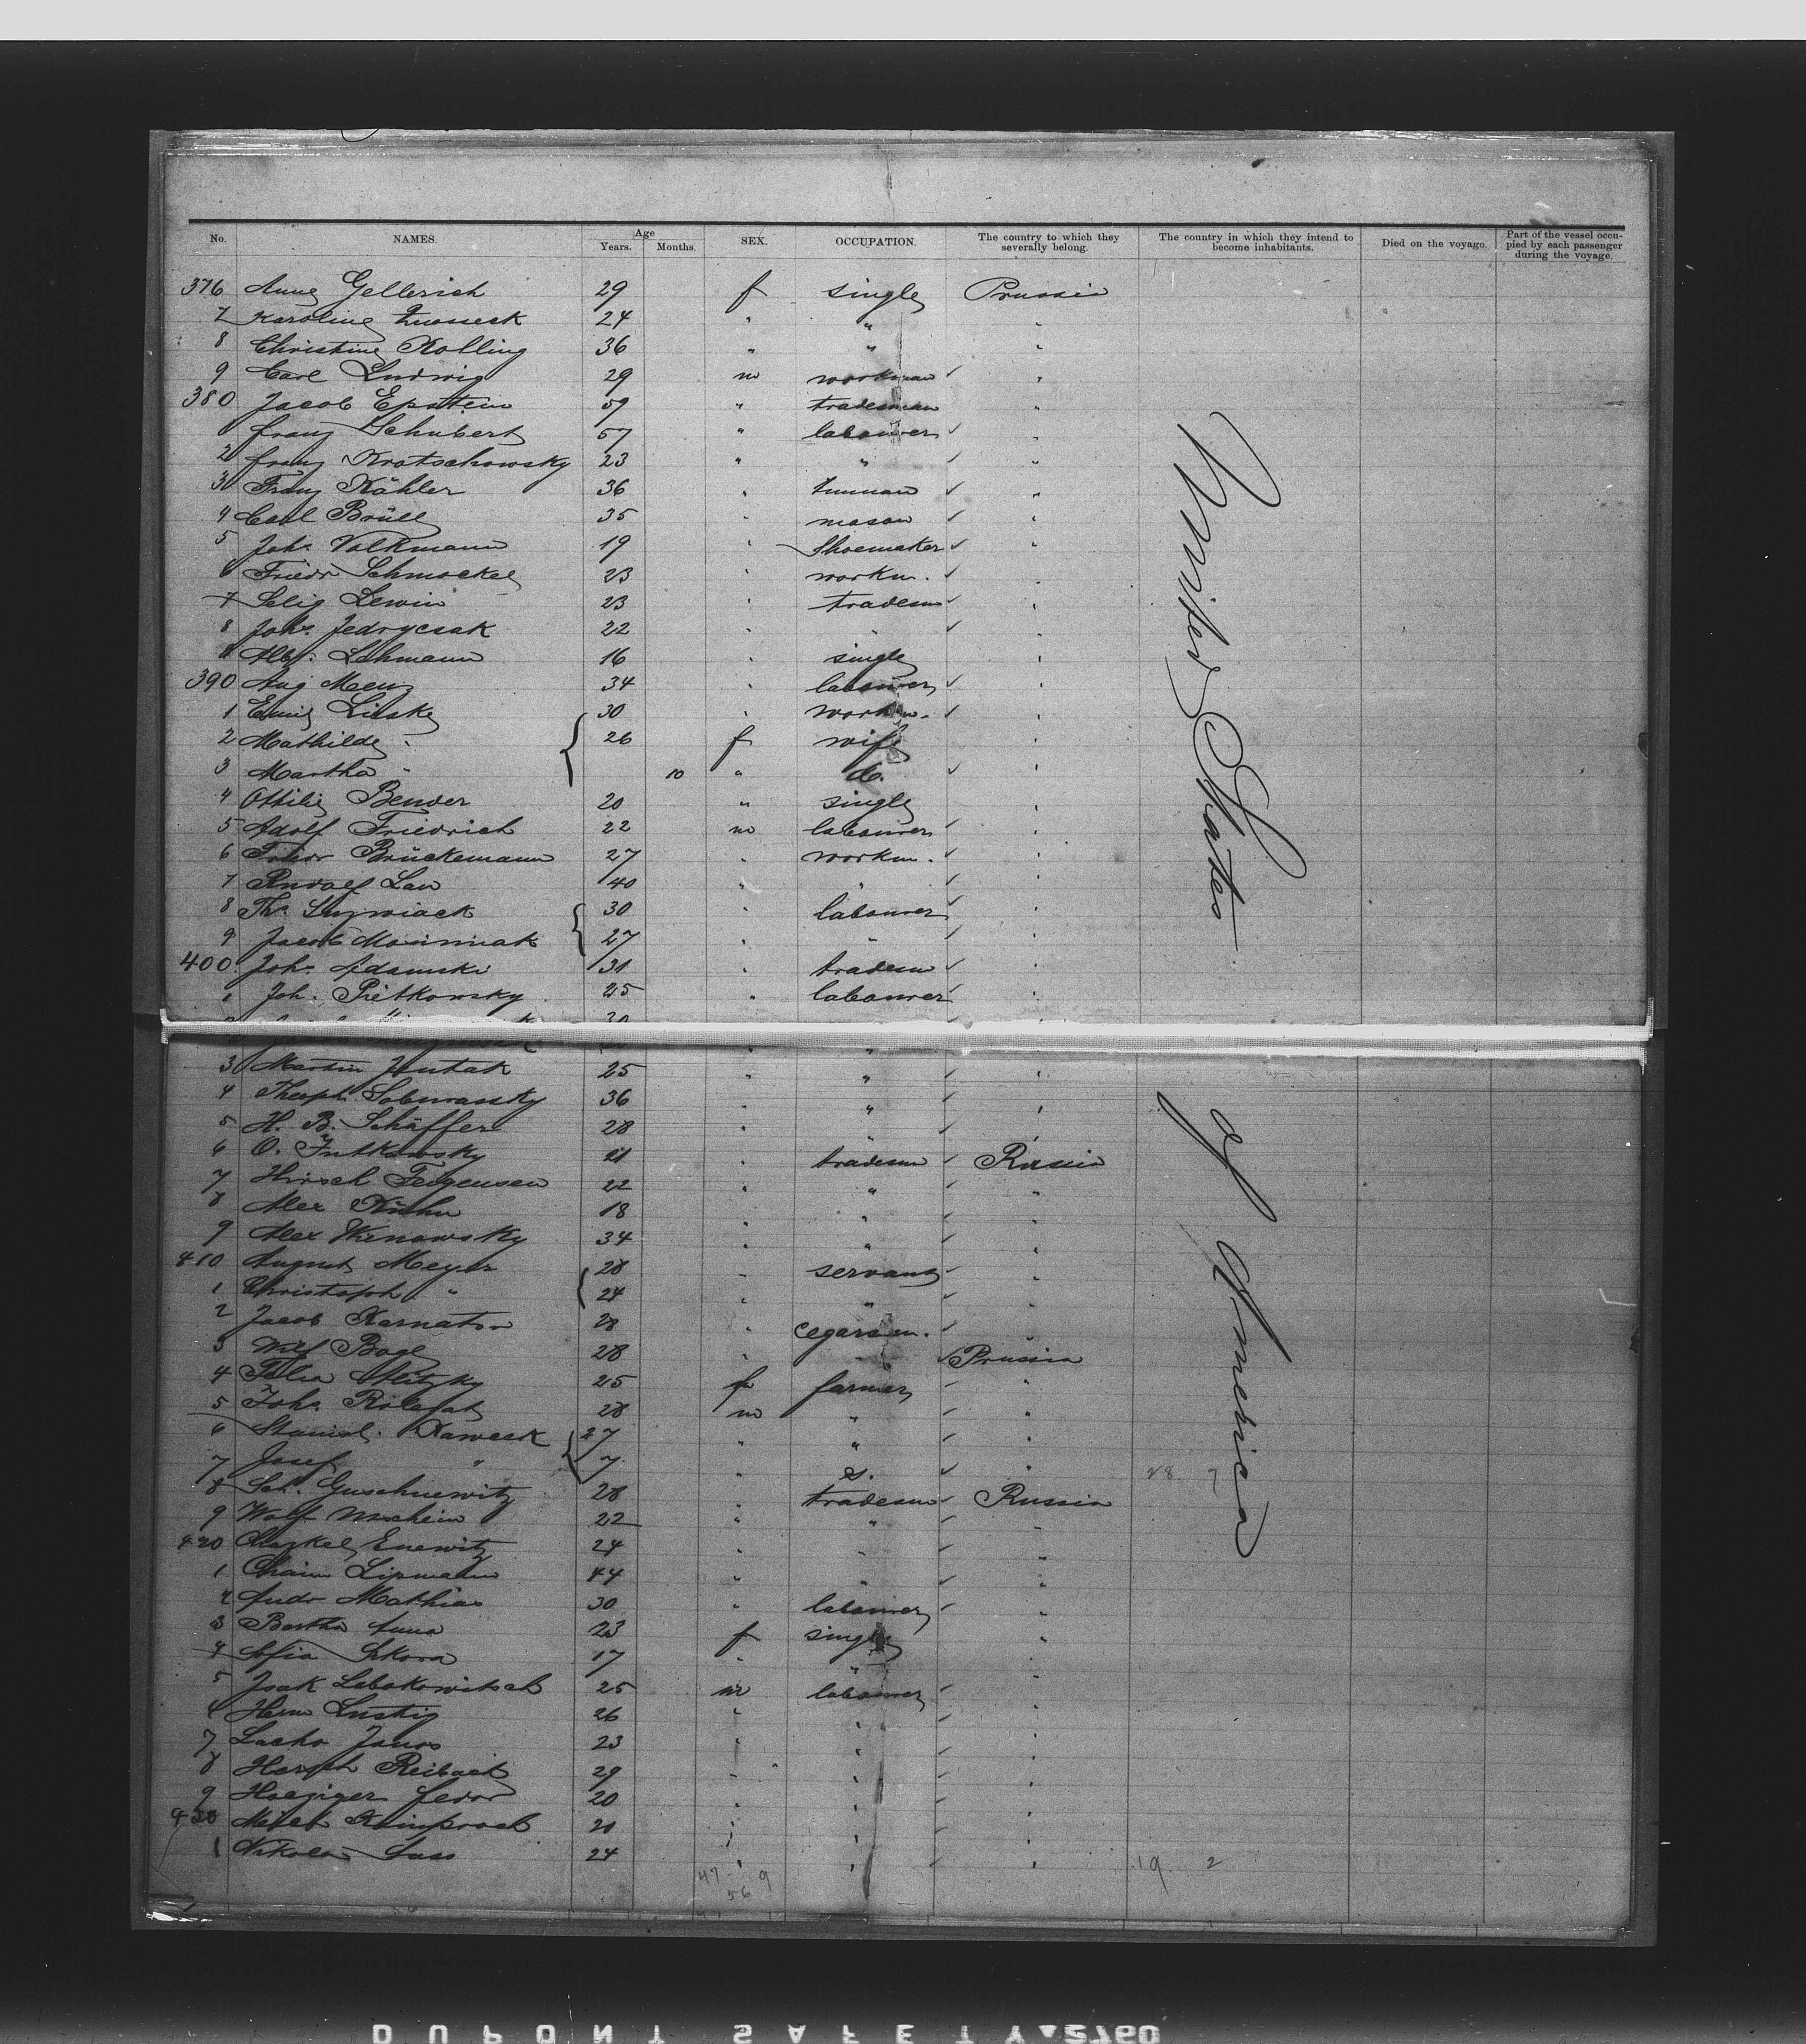 No. NAMES. Age Years. Months. SEX. OCCUPATION. The country to which they severally belong. The country in which they intend to become inhabitants. Died on the voyage. Part of the vessel occupied by each passenger during the voyage.
376 Anna Gellerich 29 f single Prussia
7 Karoline 24 " " "
8 Christine Kolling 36 " " "
9 Carl Ludwig 29 m workman "
380 Jacob Epstein 59 " tradesman "
1 Franz Schubert 57 " labourer "
2 Franz Kratschowsky 23 " " "
3 Franz Kähler 36 " "
4 Carl Brüll 35 " mason "
5 Joh. Volkmann 19 " Shoemaker "
6 Friedr Schmockel 23 " workm. "
7 Selig Lewin 23 " tradesm "
8 Joh. Jedrycsak 22 " " "
9 Alb. Lehmann 16 " single "
390 Aug Menz 34 " labourer "
1 Emil Lieske 30 " workm. "
2 Mathilde " 26 f wife "
3 Martha " 10 " d. "
4 Ottilie Bender 20 " single "
5 Adolf Friedrich 22 m labourer "
6 Friedr Brückemann 27 " workm. "
7 Rudolf Lau 40 " " "
8 30 " labourer "
9 Jacob 27 " " "
400 Joh. Adamski 31 " tradesm "
1 Joh. Pietkowsky 25 " labourer "
2 30
3 Martin 25 " " "
4 Theoph. 36 " " "
5 H. B. Schäffer 28 " " "
6 O. 21 " tradesm Russia
7 Hirsch Feigensen 22 " " "
8 Alex Kuhn 18 " " "
9 Alex 34 " " "
410 August Meyer 28 " servant "
1 Christoph " 24 " " "
2 Jacob 28 " cegarsm. "
3 Wilh 28 " " Prussia
4 25 f farmer "
5 Joh. 28 m " "
6 Stanisl. Kaweck 27 " " "
7 Josef " 7 " s. " 28 7
8 Sch. Guschnewitz 28 " tradesm Russia
9 Wolf 22 " " "
420 Enewitz 24 " " "
1 Chaim Lipmann 44 " " "
2 Andr Mathias 30 " labourer "
3 Bertha Anna 23 f single "
4 Sofia Sikora 17 " " "
5 Isak Lebokowitsch 25 m labourer "
6 Herm Lustig 26 " " "
7 Lacho Janos 23 " " "
8 Hersch Reibach 29 " " "
9 Fedor 20 " " "
430 " " "
1 Nikolaus 24 " " " 19 2
47 9
56
United States
of America
DUPONT SAFETY 2760